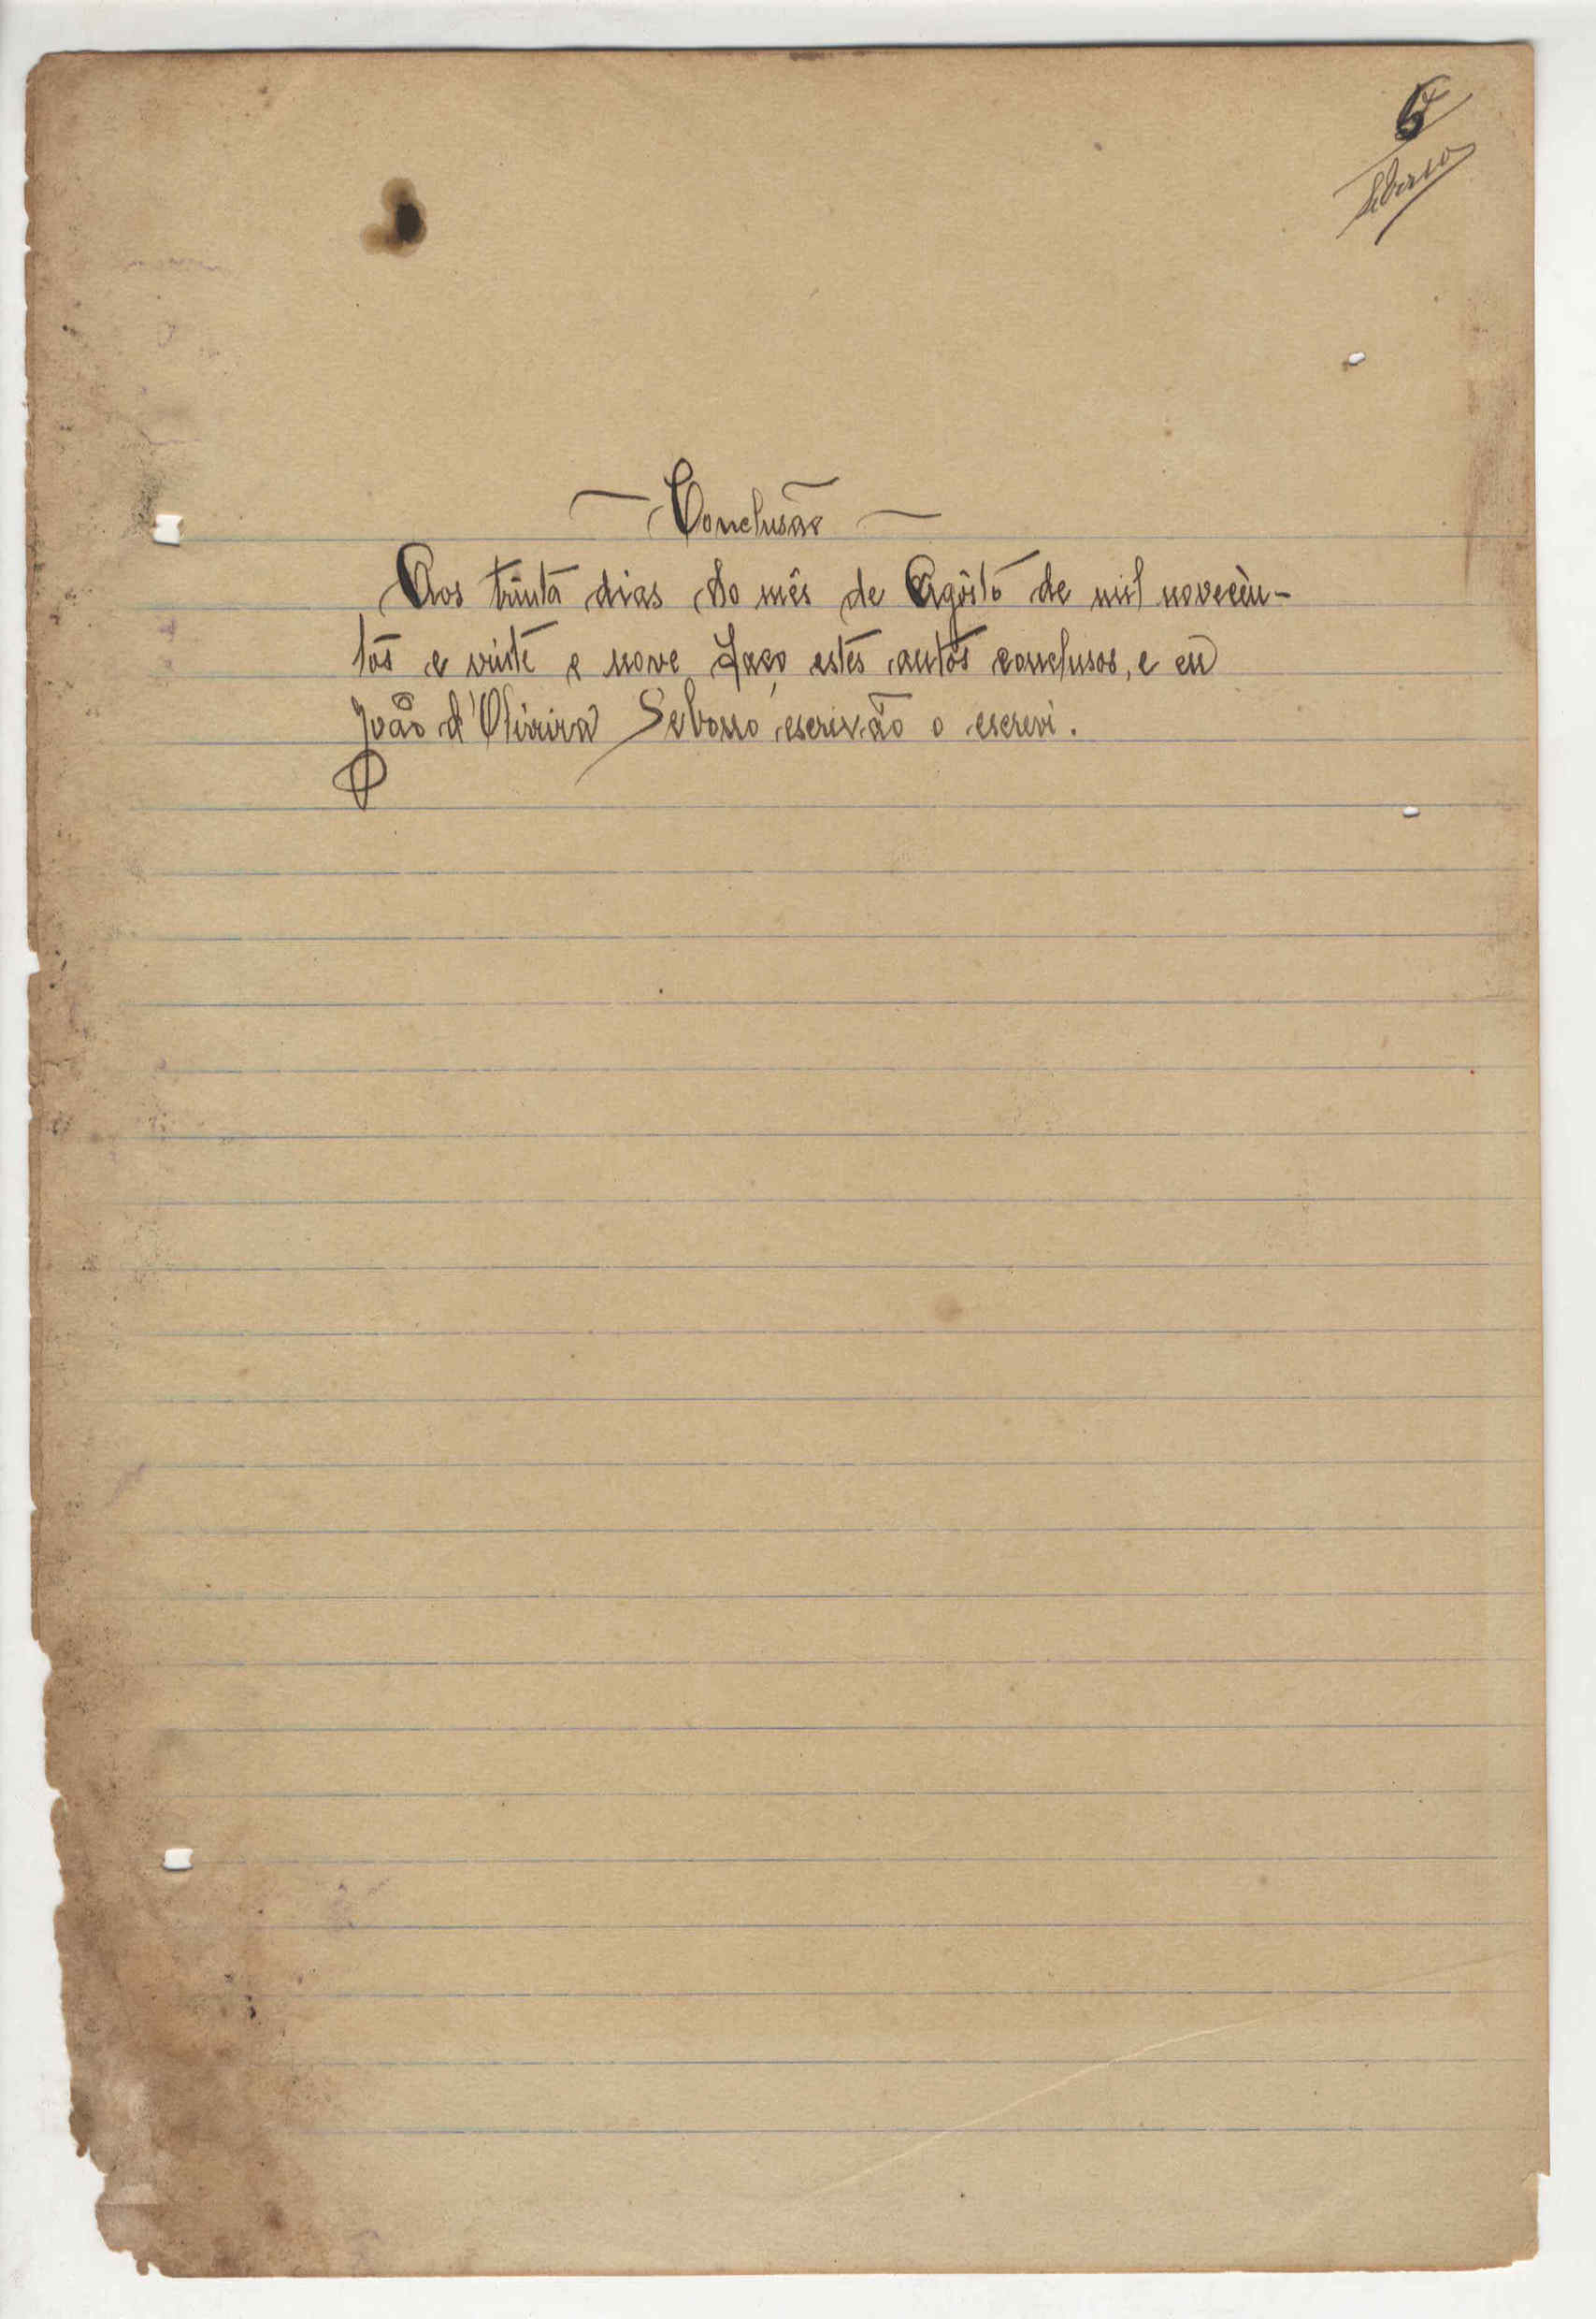 6
— Conclusão —
Aos trinta dias do mês de Agôsto de mil novecèn-
tos e vinte e nove faço estes autos conclusos, e eu
João d'Oliveira escrivão o escrevi.